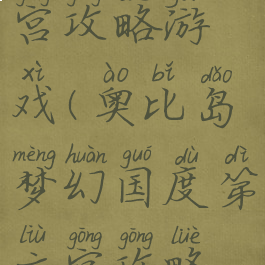 宫攻略游
xì ào bǐ dǎo
戏(奥比岛
mèng huàn guó dù dì
梦幻国度第
liù gōng gōng lüè
六宫攻略